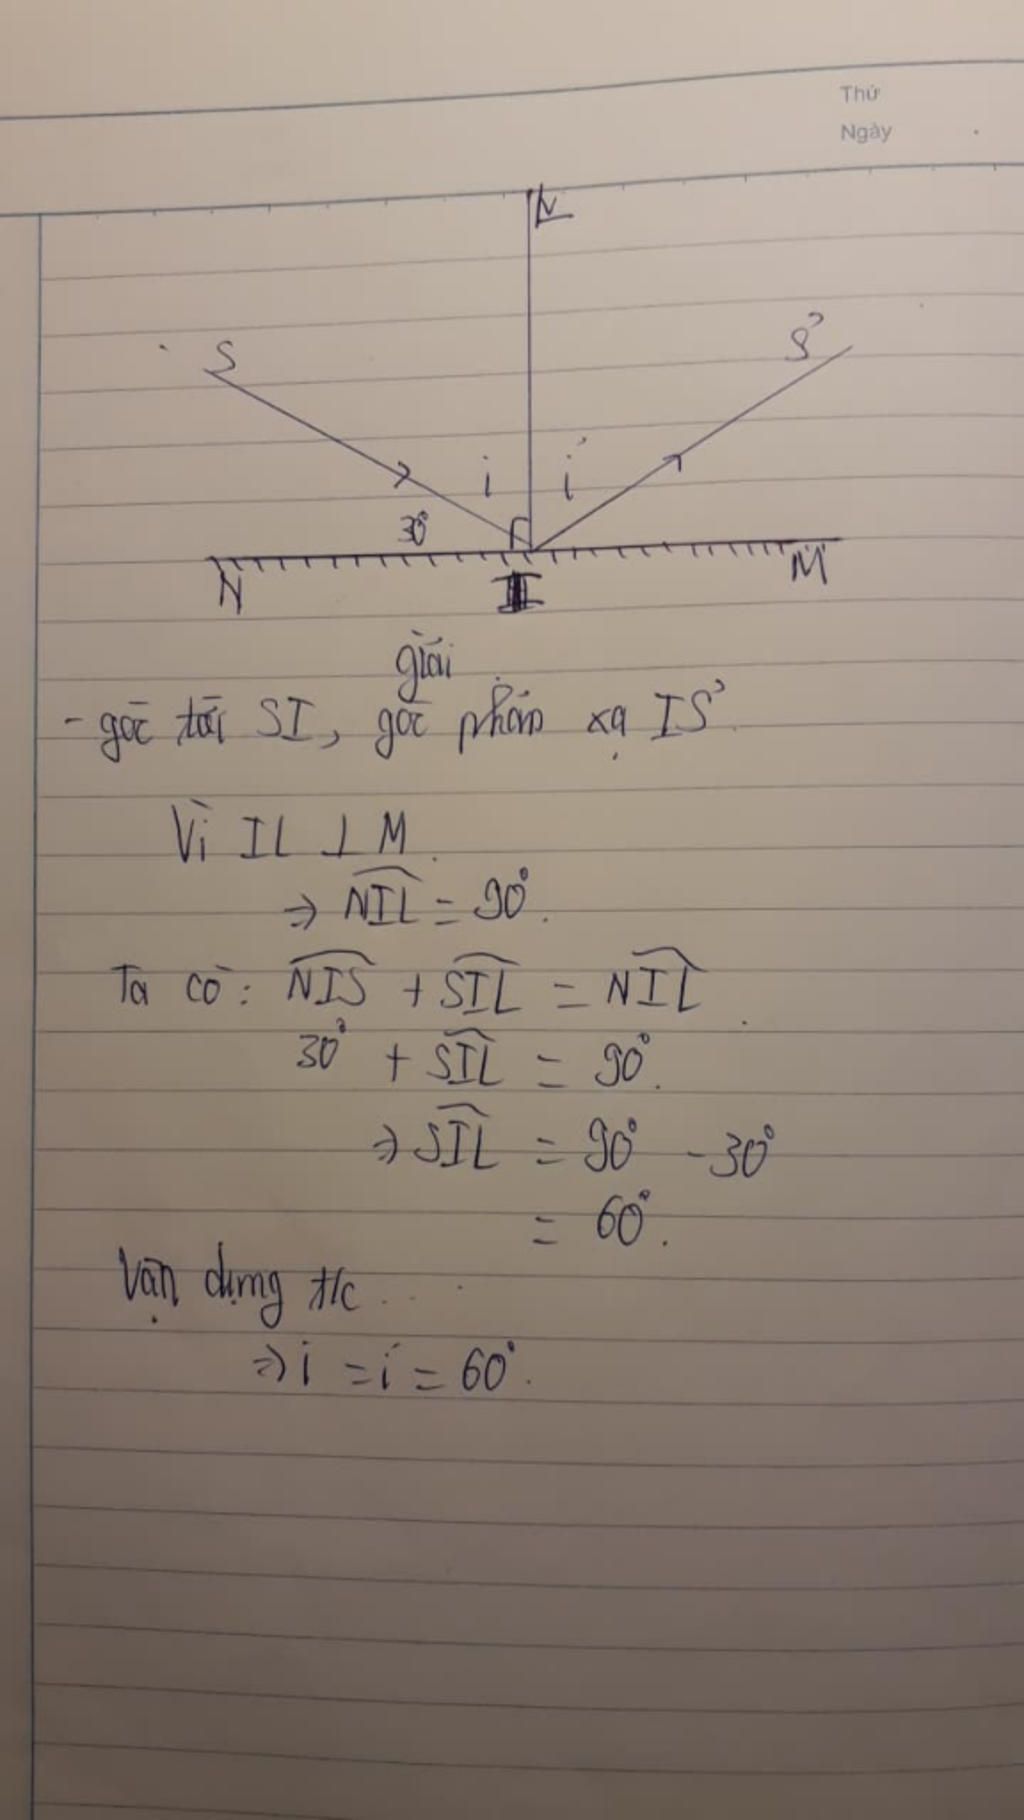 Thứ
Ngày
L
S
S'
i
i'
30°
N
I
M
giải
- góc tới SI, góc phản xạ IS'
Vì IL ⊥ M.
⇒ NIL = 90°.
Ta có: NIS + SIL = NIL
30° + SIL = 90°.
⇒ SIL = 90° - 30°
= 60°.
Vận dụng t/c ...
⇒ i = i' = 60°.